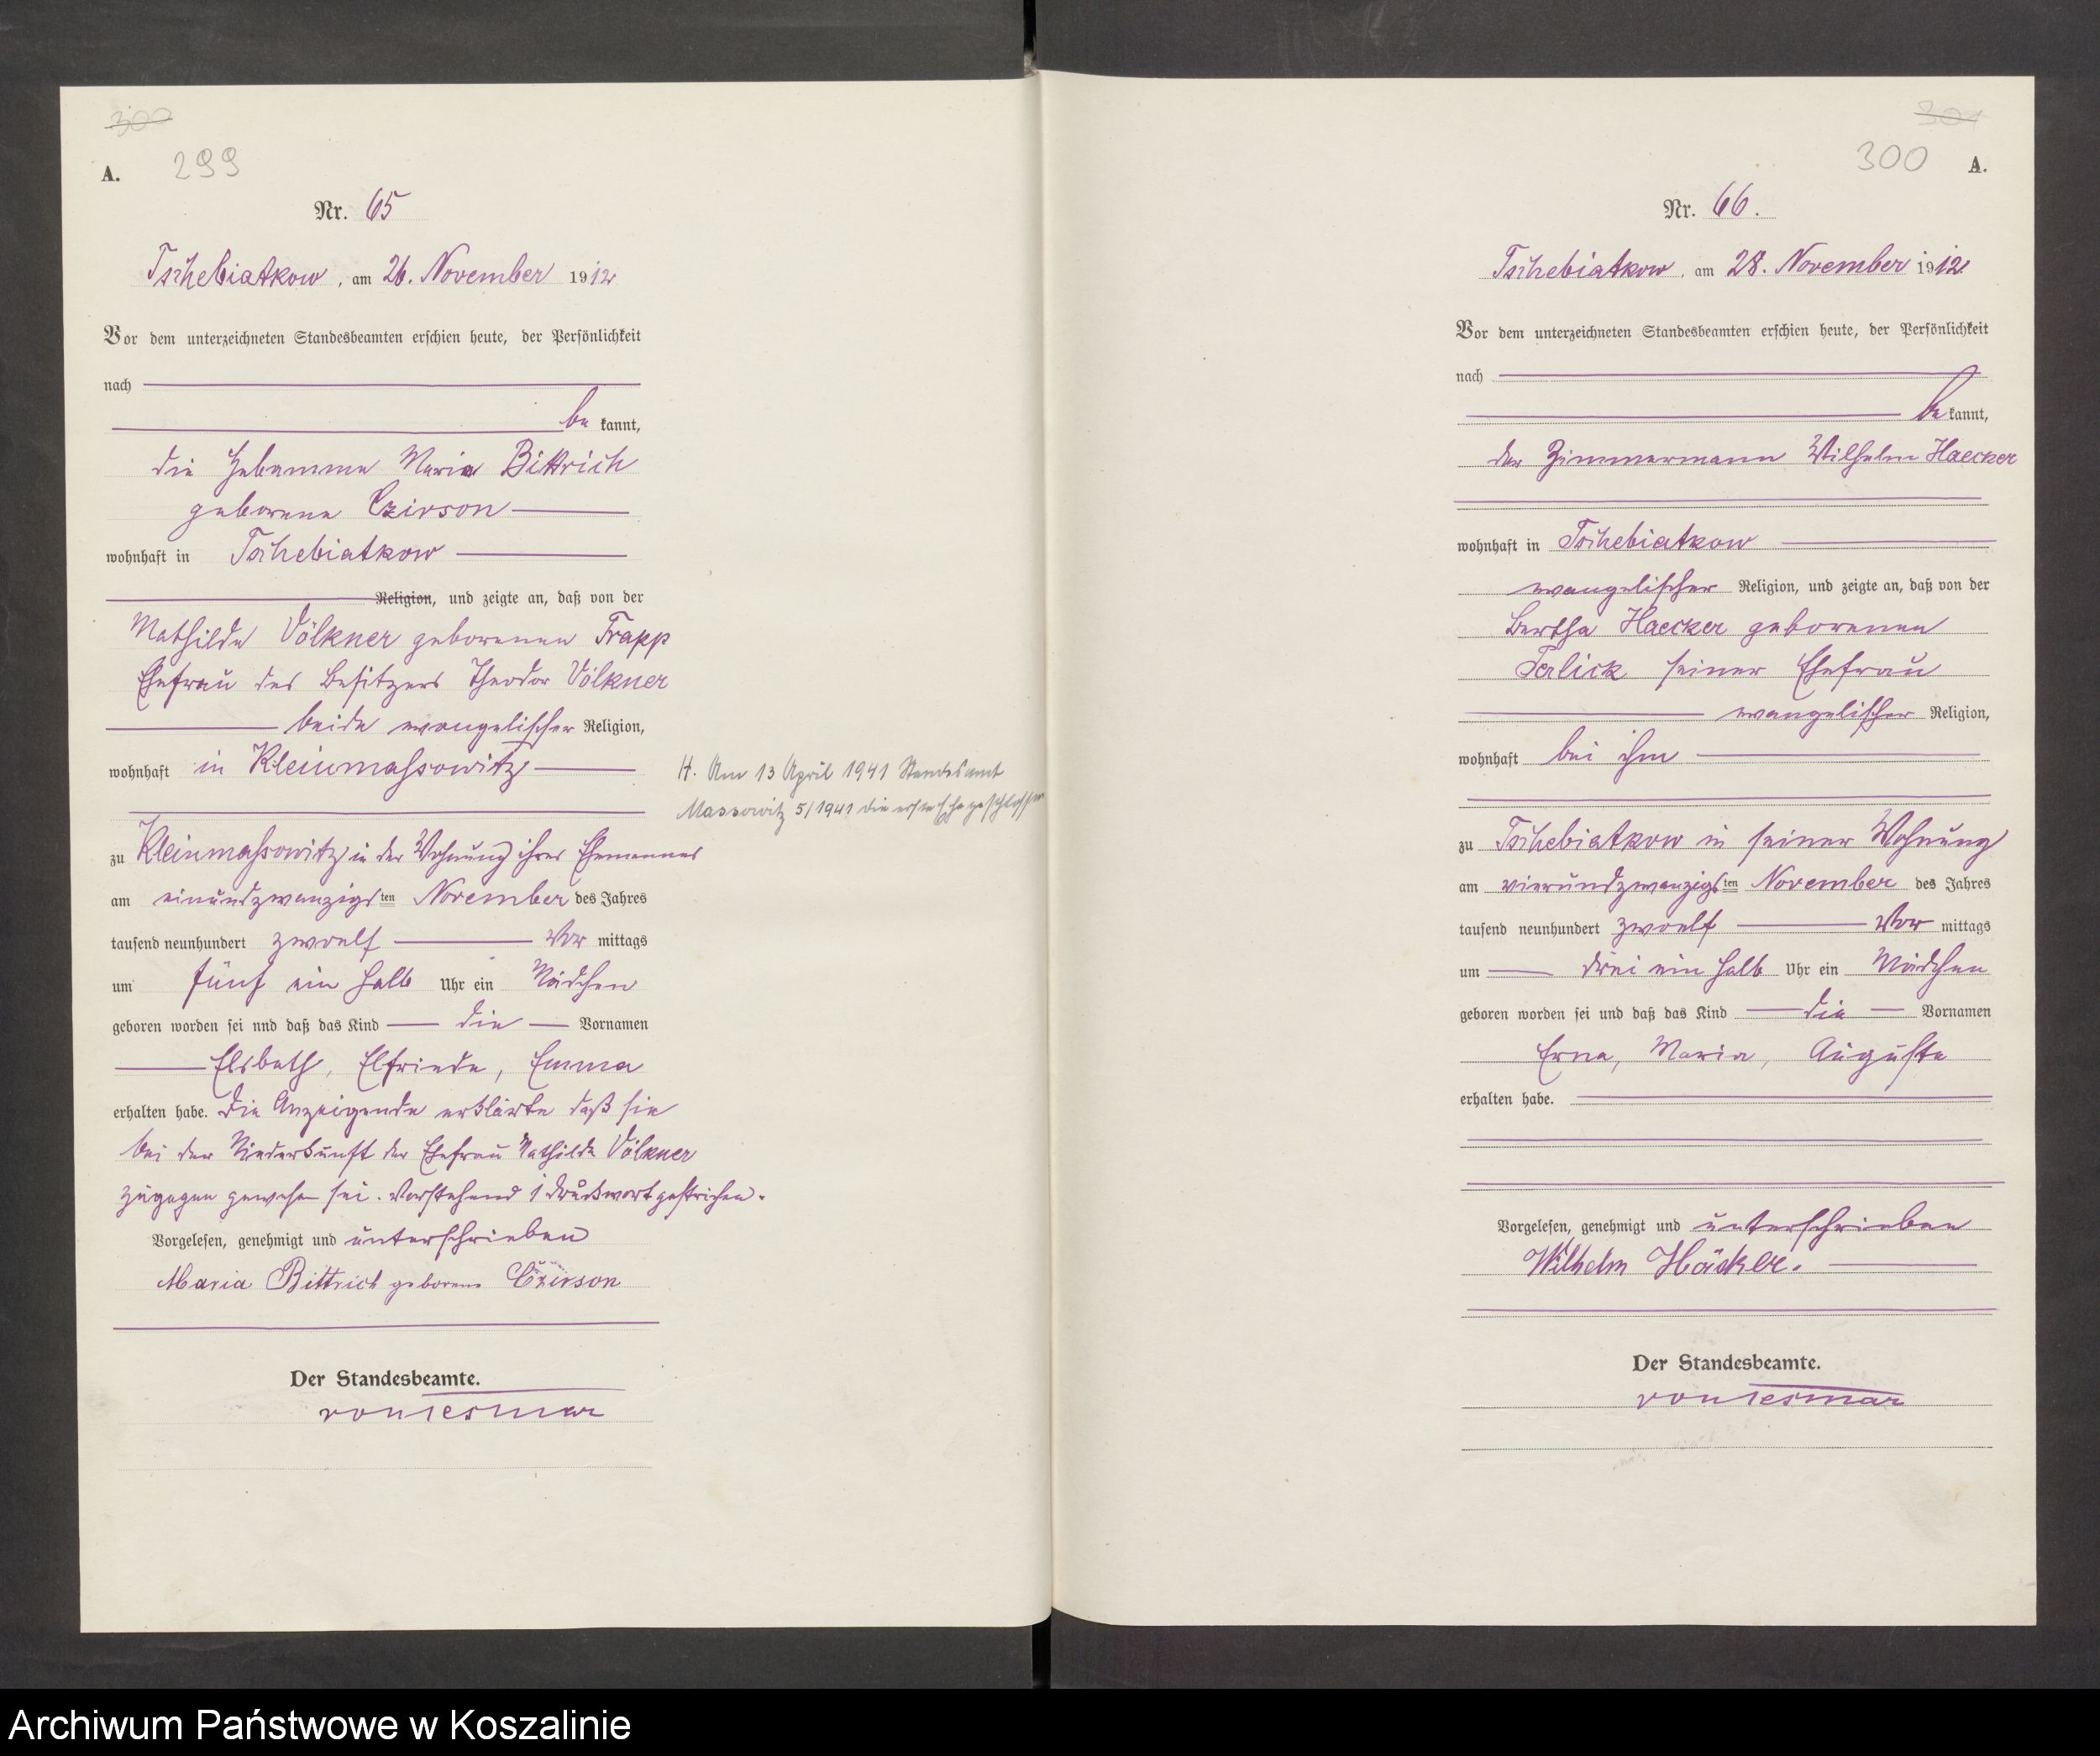 300
A. 299
Nr. 65
Tschebiatkow, am 26. November 1912
Vor dem unterzeichneten Standesbeamten erschien heute, der Persönlichkeit
nach
be kannt,
die Hebamme Maria Bittrich
geborene Czirson
wohnhaft in Tschebiatkow
Religion, und zeigte an, daß von der
Mathilde Völkner geborenen Trapp
Ehefrau des Besitzers Theodor Völkner
beide evangelischer Religion,
wohnhaft in Kleinmassowitz
zu Kleinmassowitz in der Wohnung ihres Ehemannes
am einundzwanzigsten November des Jahres
tausend neunhundert zwoelf Vor mittags
um fünf ein halb Uhr ein Mädchen
geboren worden sei nnd daß das Kind die Vornamen
Elsbeth, Elfriede, Emma
erhalten habe. Die Anzeigende erklärte daß sie
bei der Niederkunft der Ehefrau Mathilde Völkner
zugegen gewesen sei. Vorstehend 1 Druckwort gestrichen.
Vorgelesen, genehmigt und unterschrieben
Maria Bittrich geborene Czirson
Der Standesbeamte.
von Tesmar
H. Am 13 April 1941 Standesamt
Massowitz 5/1941 die erste Ehe geschlossen
301
300 A.
Nr. 66.
Tschebiatkow, am 28. November 1912
Vor dem unterzeichneten Standesbeamten erschien heute, der Persönlichkeit
nach
be kannt,
der Zimmermann Wilhelm Haecker
wohnhaft in Tschebiatkow
evangelischer Religion, und zeigte an, daß von der
Bertha Haecker geborenen
Serlick seiner Ehefrau
evangelischer Religion,
wohnhaft bei ihm
zu Tschebiatkow in seiner Wohnung
am vierundzwanzigsten November des Jahres
tausend neunhundert zwoelf Vor mittags
um drei ein halb Uhr ein Mädchen
geboren worden sei und daß das Kind die Vornamen
Erna, Maria, Auguste
erhalten habe.
Vorgelesen, genehmigt und unterschrieben
Wilhelm Häcker.
Der Standesbeamte.
von Tesmar
Archiwum Państwowe w Koszalinie